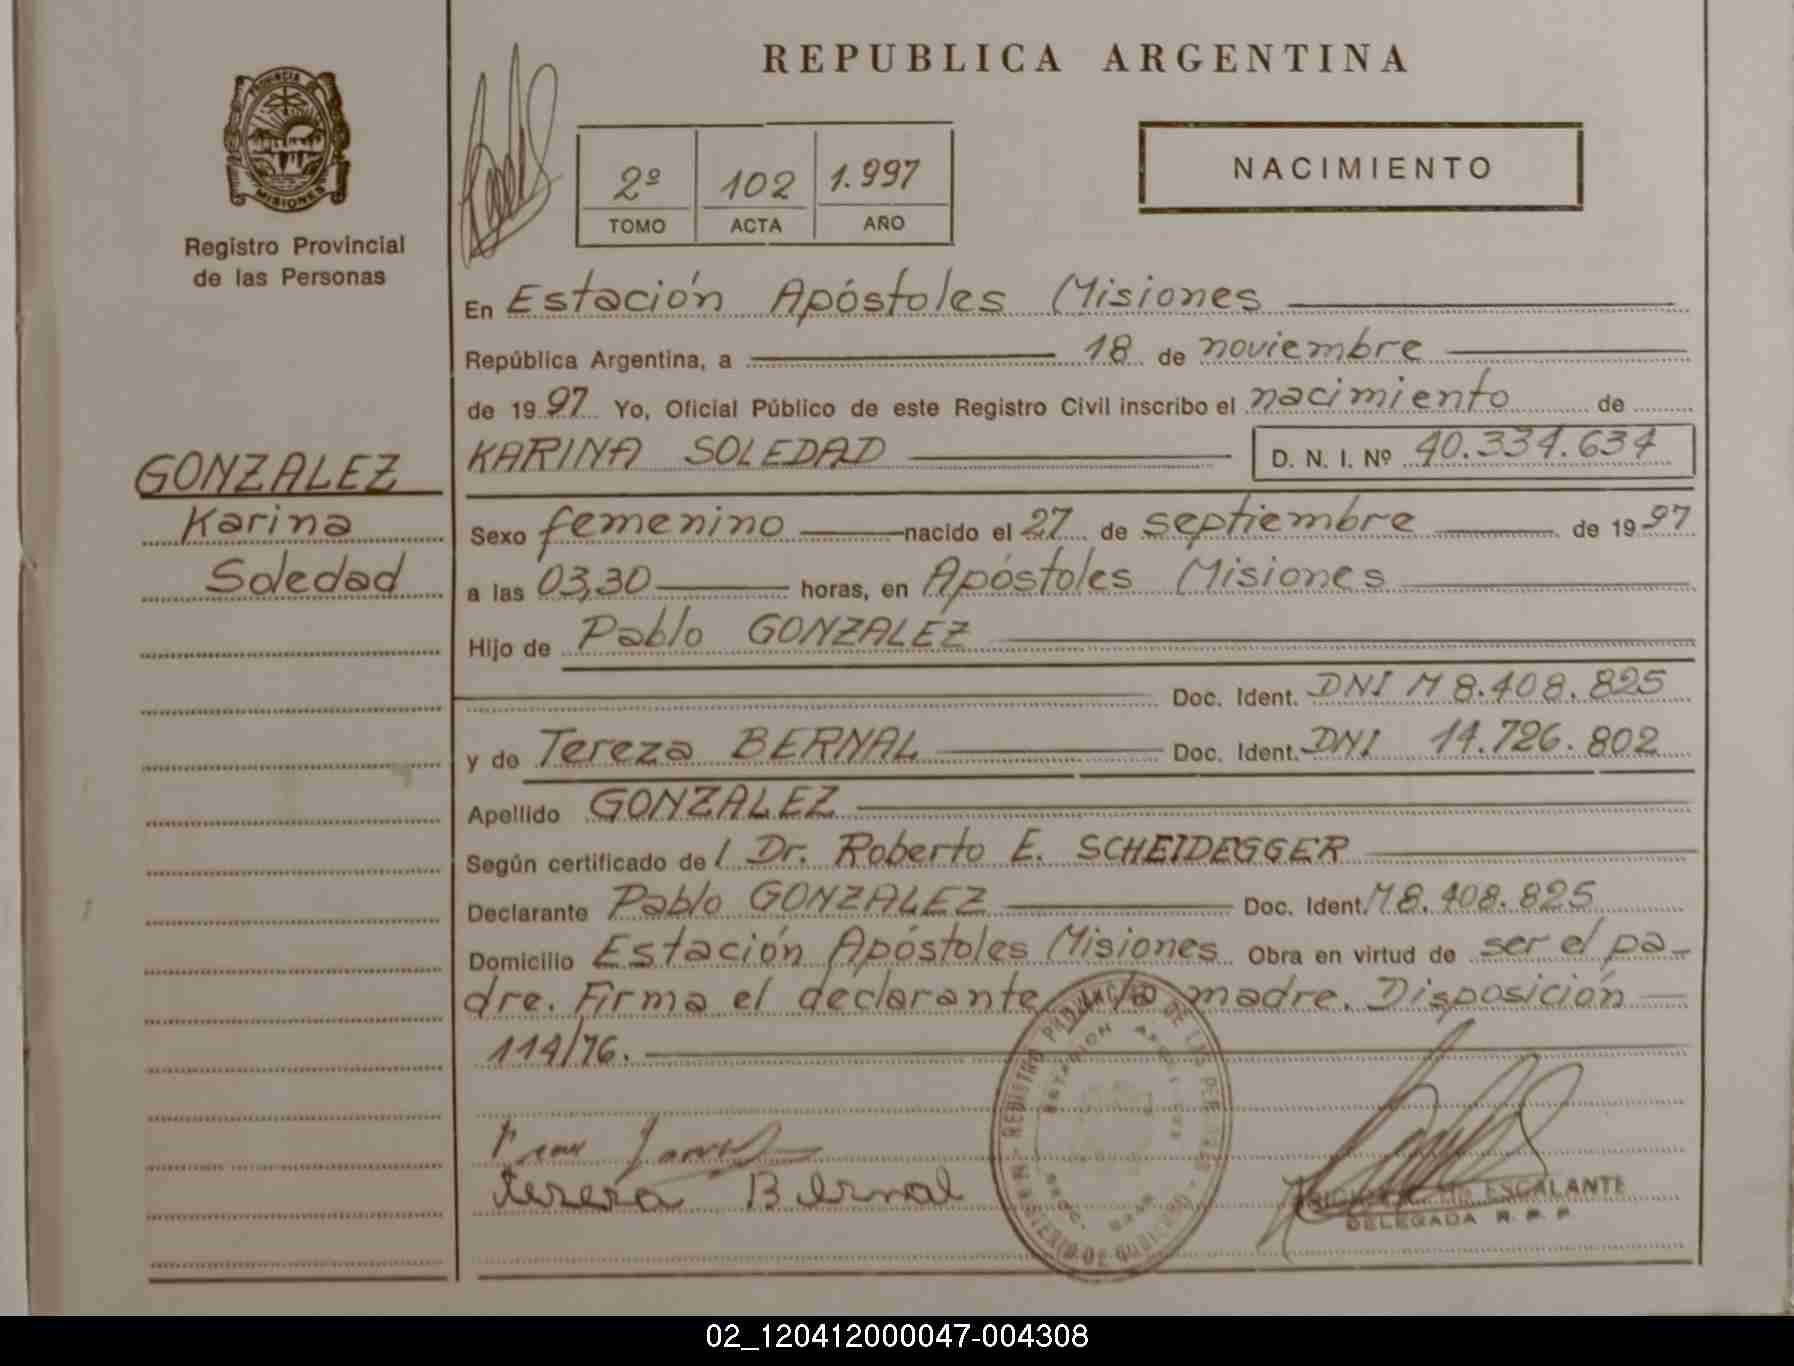 REPUBLICA ARGENTINA
PROVINCIA
MISIONES
Registro Provincial
de las Personas
2º 102 1.997
TOMO ACTA AÑO
NACIMIENTO
En Estación Apóstoles Misiones
República Argentina, a 18 de noviembre
de 1997 Yo, Oficial Público de este Registro Civil inscribo el nacimiento de
KARINA SOLEDAD D. N. I. Nº 40.334.634
GONZALEZ
Karina
Soledad
Sexo femenino nacido el 27 de septiembre de 1997
a las 03,30 horas, en Apóstoles Misiones
Hijo de Pablo GONZALEZ
Doc. Ident. DNI M 8.408.825
y de Tereza BERNAL Doc. Ident. DNI 14.726.802
Apellido GONZALEZ
Según certificado de / Dr. Roberto E. SCHEIDEGGER
Declarante Pablo GONZALEZ Doc. Ident. M 8.408.825
Domicilio Estación Apóstoles Misiones Obra en virtud de ser el pa-
dre. Firma el declarante y la madre. Disposición
114/76.
REGISTRO PROVINCIAL DE LAS PERSONAS
ESTACION APOSTOLES
MINISTERIO DE GOBIERNO
tereza Bernal
ESCALANTE
DELEGADA R. P. P.
02_120412000047-004308